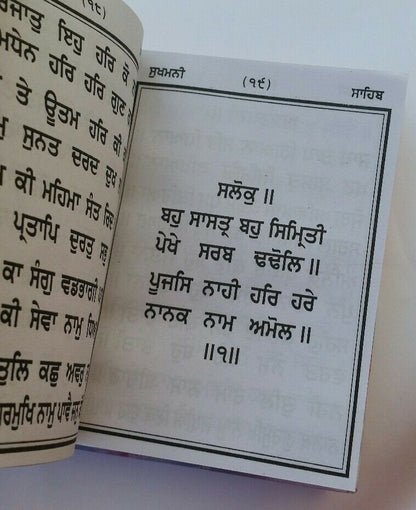 (੧੮)
ਇਹੁ ਹਰਿ
ਹਰਿ ਹਰਿ ਗੁਣ
ਤੇ ਊਤਮ ਹਰਿ ਕੀ
ਸੁਨਤ ਦਰਦ ਦੁਖ
ਕੀ ਮਹਿਮਾ ਸੰਤ
ਪ੍ਰਤਾਪਿ ਦੁਰਤੁ
ਕਾ ਸੰਗੁ ਵਡਭਾਗੀ
ਕੀ ਸੇਵਾ ਨਾਮੁ
ਤੁਲਿ ਕਛੁ ਅਵਰੁ
ਨਾਮੁ ਪਾਵੈ
ਸੁਖਮਨੀ (੧੯) ਸਾਹਿਬ
ਸਲੋਕੁ ॥
ਬਹੁ ਸਾਸਤ੍ਰ ਬਹੁ ਸਿਮ੍ਰਿਤੀ
ਪੇਖੇ ਸਰਬ ਢਢੋਲਿ ॥
ਪੂਜਸਿ ਨਾਹੀ ਹਰਿ ਹਰੇ
ਨਾਨਕ ਨਾਮ ਅਮੋਲ ॥
॥੧॥